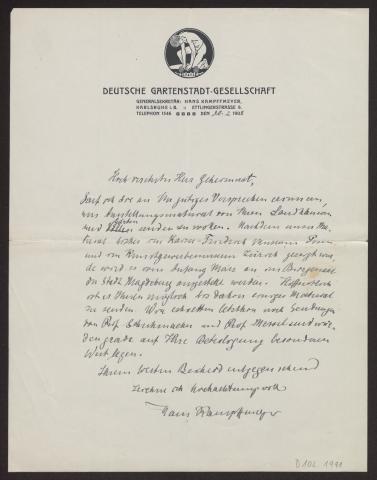 DEUTSCHE GARTENSTADT-GESELLSCHAFT
GENERALSEKRETÄR: HANS KAMPFFMEYER,
KARLSRUHE i. B. :: ETTLINGENSTRASSE 6.
TELEPHON 1546 DEN 20. 2. 191
Hoch verehrter Herr Geheimrat,
Darf ich Sie an Ihr gütiges Versprechen erinnern,
uns Ausstellungsmaterial von Ihren Landhäusern
und Gärten senden zu wollen. Nachdem unser Ma-
terial bisher im Kaiser-Friedrich Museum Posen
und im Kunstgewerbemuseum Zürich gezeigt wur-
de wird es von Anfang März an im
der Stadt Magdeburg ausgestellt werden. Hoffentlich
ist es Ihnen möglich bis dahin einiges Material
zu senden. Wir erhielten letzthin noch Sendungen
von Prof. Schultze und Prof. Messel und wür-
den gerade auf Ihre Beteiligung besonderen
Wert legen.
Ihrem werten Bescheid entgegensehend
zeichne ich hochachtungsvoll
Hans Kampffmeyer
D 102 1991